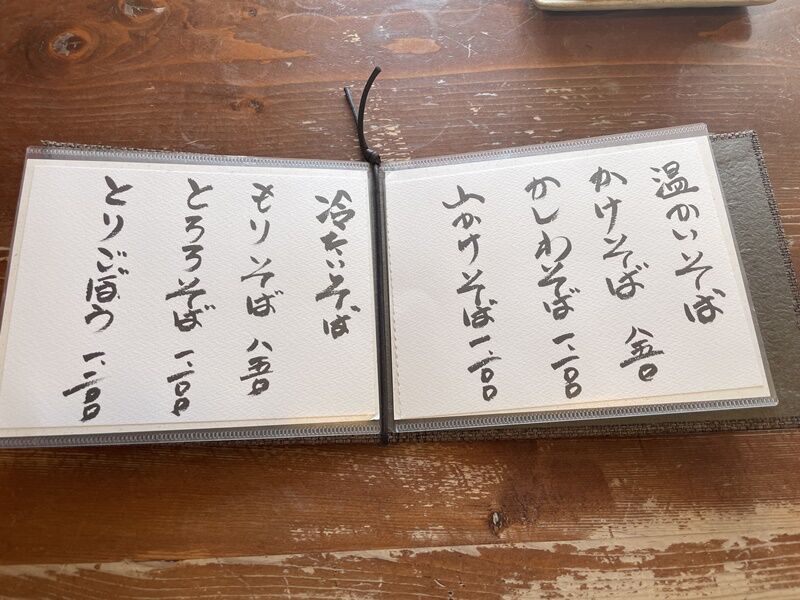 温かいそば
かけそば 八五〇
かしわそば 一、二〇〇
山かけそば 一、二〇〇
冷たいそば
もりそば 八五〇
とろろそば 一、二〇〇
とりごぼう 一、二〇〇